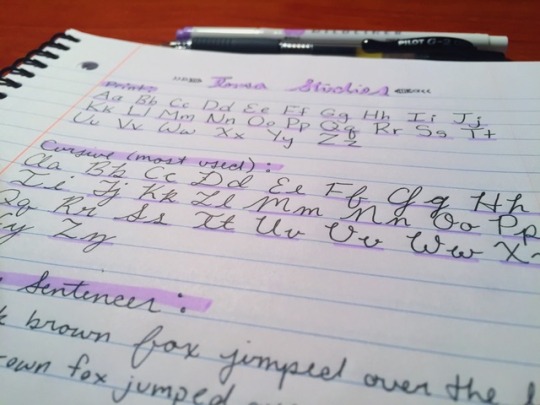 PILOT G-2
Studies
Print:
Aa Bb Cc Dd Ee Ff Gg Hh Ii Jj
Kk Ll Mm Nn Oo Pp Qq Rr Ss Tt
Uu Vv Ww Xx Yy Zz
Cursive (most used):
Aa Bb Cc Dd Ee Ff Gg Hh
Ii Jj Kk Ll Mm Nn Oo Pp
Qq Rr Ss Tt Uu Vv Ww X
y Zz
Sentences:
k brown fox jumped over the l
rown fox jumped